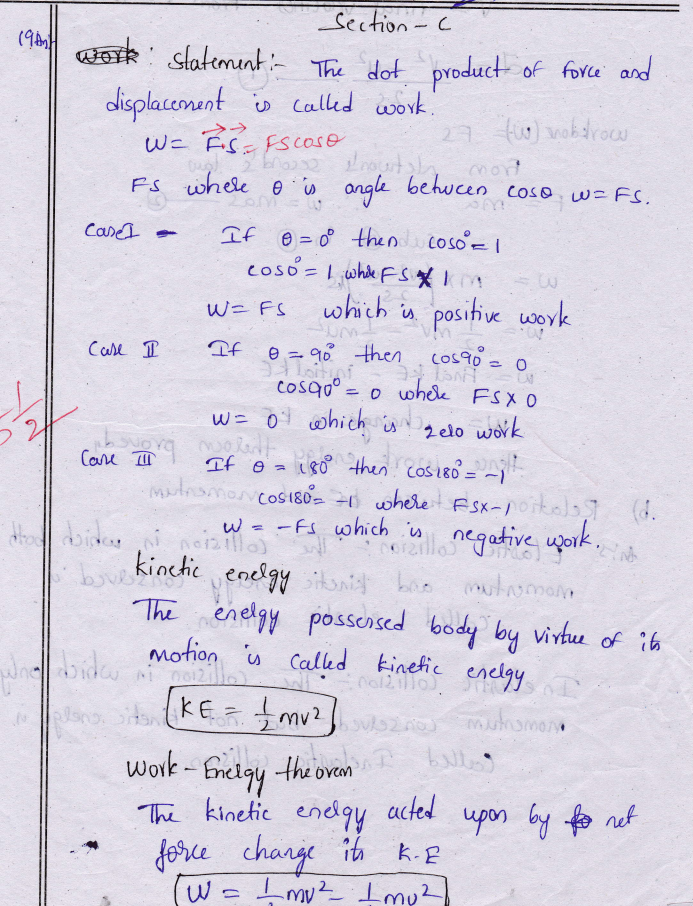 Section - C
(9Ans
work : Statement :- The dot product of force and
displacement is called work.
W = F.S = FS cosθ
FS where θ is angle between cosθ W = FS.
Case I - If θ = 0° then cos0° = 1
cos0° = 1 where FS × 1
W = FS which is positive work
Case II If θ = 90° then cos90° = 0
cos90° = 0 where FS × 0
W = 0 which is zero work
1/2
Case III If θ = 180° then cos180° = -1
cos180° = -1 where FS×-1
W = -FS which is negative work.
kinetic energy
The energy possersed body by virtue of its
motion is called kinetic energy
KE = 1/2 mv²
Work - Energy theorem
The kinetic energy acted upon by fo net
force change its K.E
W = 1/2 mv² - 1/2 mu²